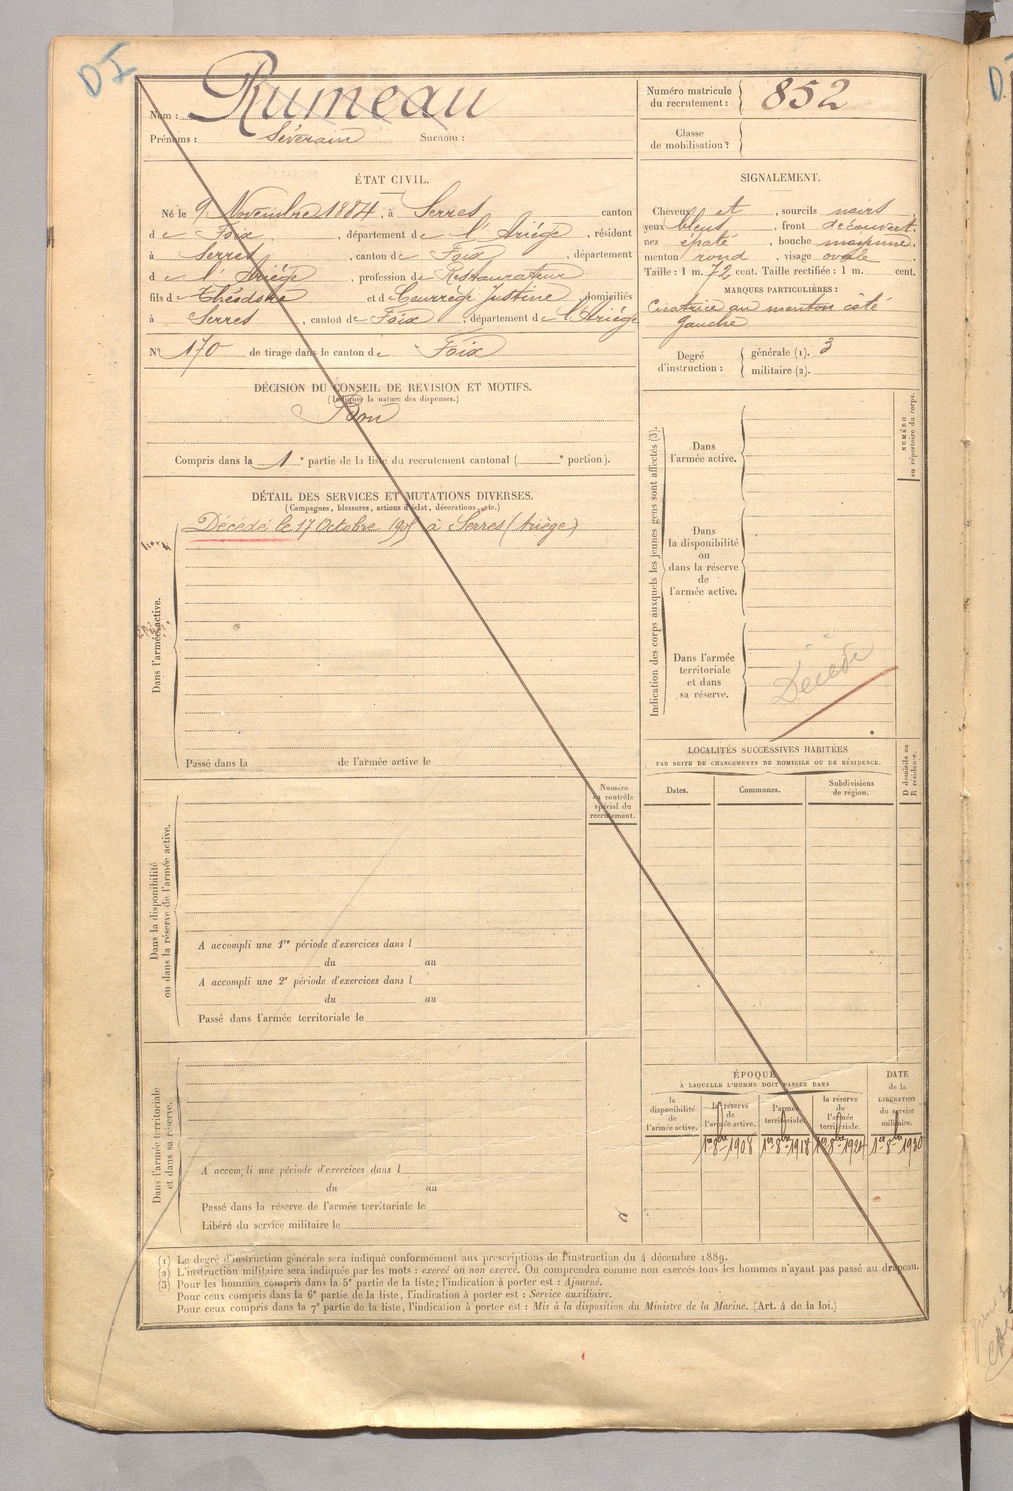 D I
Nom : Rumeau
Prénoms : Séverain Surnom :
Numéro matricule du recrutement : 852
Classe de mobilisation :
ÉTAT CIVIL.
Né le 9 Novembre 1884, à Serres canton
de Foix, département de l'Ariège, résidant
à Serres, canton de Foix, département
de l'Ariège, profession de Restaurateur
fils de Théodore et de Courrège Justine, domiciliés
à Serres, canton de Foix, département de l'Ariège
N° 170 de tirage dans le canton de Foix
SIGNALEMENT.
Cheveux et, sourcils noirs
yeux bleus, front découvert.
nez épaté, bouche moyenne,
menton rond, visage ovale
Taille : 1 m. 72 cent. Taille rectifiée : 1 m. cent.
MARQUES PARTICULIÈRES :
Cicatrice au menton côté
gauche
Degré d'instruction : générale (1). 3
militaire (2).
DÉCISION DU CONSEIL DE RÉVISION ET MOTIFS.
(Indiquer la nature des dispenses.)
Bon
Compris dans la 1e partie de la liste du recrutement cantonal ( e portion).
DÉTAIL DES SERVICES ET MUTATIONS DIVERSES.
(Campagnes, blessures, actions d'éclat, décorations, etc.)
Dans l'armée active.
Décédé le 17 Octobre 1905 à Serres (Ariège)
Passé dans la de l'armée active le
Indication des corps auxquels les jeunes gens sont affectés (3).
NUMÉRO au répertoire du corps.
Dans
l'armée active.
Dans
la disponibilité
ou
dans la réserve
de
l'armée active.
Dans l'armée
territoriale
et dans
sa réserve.
Décédé
LOCALITÉS SUCCESSIVES HABITÉES
PAR SUITE DE CHANGEMENTS DE DOMICILE OU DE RÉSIDENCE.
Dates. Communes. Subdivisions de région. D domicile ou R résidence.
Numéro au contrôle spécial du recrutement.
Dans la disponibilité
ou dans la réserve de l'armée active.
A accompli une 1re période d'exercices dans l
du au
A accompli une 2e période d'exercices dans l
du au
Passé dans l'armée territoriale le
Dans l'armée territoriale
et dans sa réserve.
A accompli une période d'exercices dans l
du au
Passé dans la réserve de l'armée territoriale le
Libéré du service militaire le
ÉPOQUE
À LAQUELLE L'HOMME DOIT PASSER DANS
DATE de la LIBÉRATION du service militaire.
la disponibilité de l'armée active. la réserve de l'armée active. l'armée territoriale. la réserve de l'armée territoriale.
1er 8bre 1908 1er 8bre 1918 1er 8bre 1924 1er 8bre 1930
(1) Le degré d'instruction générale sera indiqué conformément aux prescriptions de l'instruction du 4 décembre 1889.
(2) L'instruction militaire sera indiquée par les mots : exercé ou non exercé. On comprendra comme non exercés tous les hommes n'ayant pas passé au drapeau.
(3) Pour les hommes compris dans la 5e partie de la liste; l'indication à porter est : Ajourné.
Pour ceux compris dans la 6e partie de la liste, l'indication à porter est : Service auxiliaire.
Pour ceux compris dans la 7e partie de la liste, l'indication à porter est : Mis à la disposition du Ministre de la Marine. (Art. 4 de la loi.)